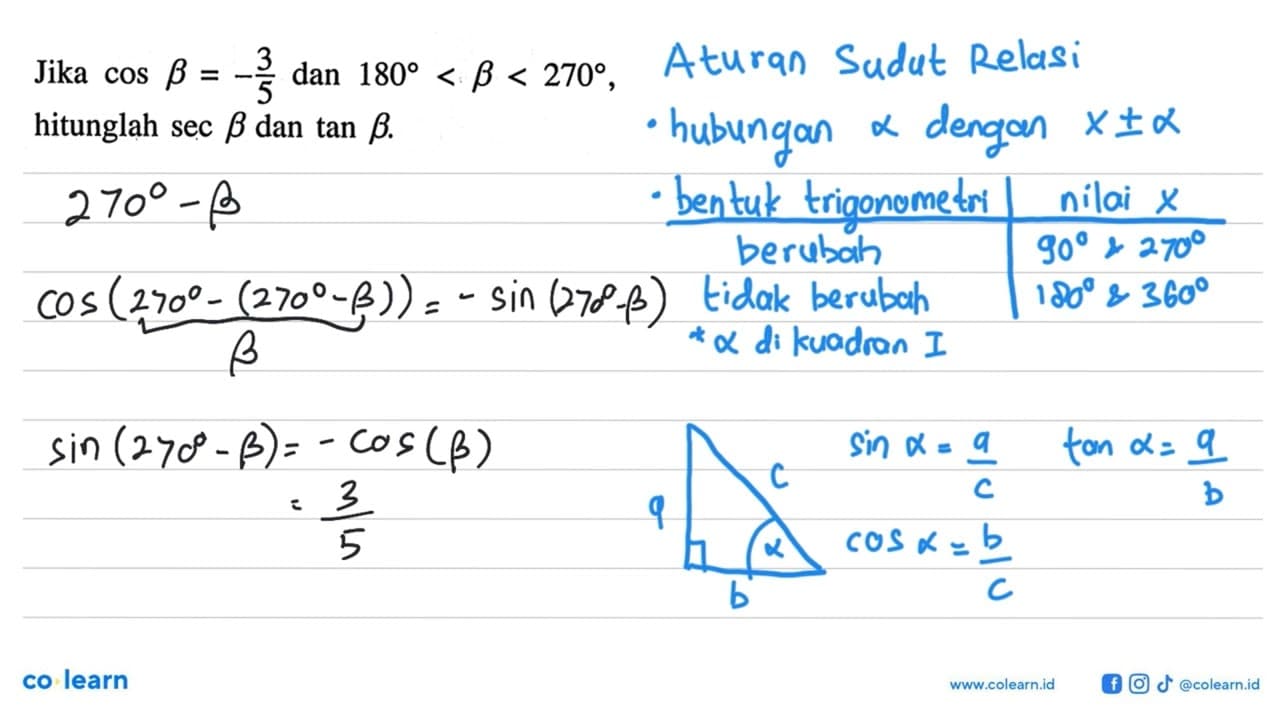 Jika cos β = -3/5 dan 180° < β < 270°,
hitunglah sec β dan tan β.
270° - β
cos (270° - (270° - β)) = - sin (270° - β)
β
sin (270° - β) = - cos (β)
= 3/5
Aturan Sudut Relasi
• hubungan α dengan x ± α
• bentuk trigonometri | nilai x
berubah | 90° & 270°
tidak berubah | 180° & 360°
* α di kuadran I
a
c
α
b
sin α = a/c
tan α = a/b
cos α = b/c
co learn
www.colearn.id
@colearn.id